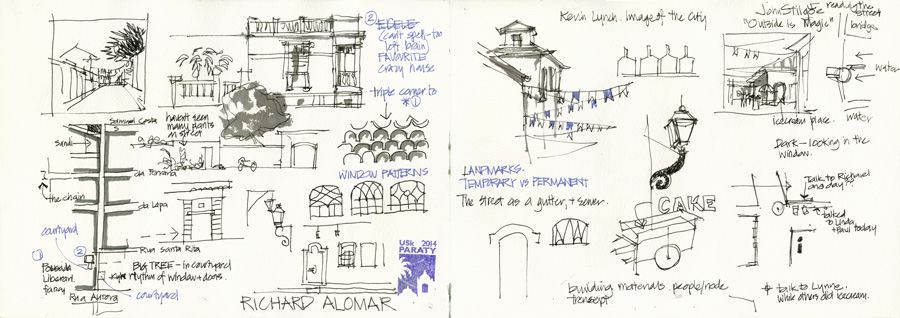 ② EDELE-
(can't spell-too
left brain)
FAVOURITE
crazy house
triple corner to
*①
haven't seen
many plants
in street
Samuel Costa
Sandi
da Ferraria
the chain
da Lapa
Rua Santa Rita
courtyard
①
②
Pousada
Literaria
Paraty
Rua Aurora
BIG TREE - in courtyard
rhythm of window + doors.
courtyard
WINDOW PATTERNS
USk 2014
PARATY
RICHARD ALOMAR
Kevin Lynch. Image of the City
LANDMARKS.
TEMPORARY VS PERMANENT
The street as a gutter, + sewer.
CAKE
building materials. people/node
transept
John Stilgoe
"Outside is Magic"
read the
street
bridge
water
water
icecream place.
Dark - looking in the
window.
Talk to Richard
one day?
talked
to Linda
+ Paul today
* talk to Lynne.
while others did icecream.